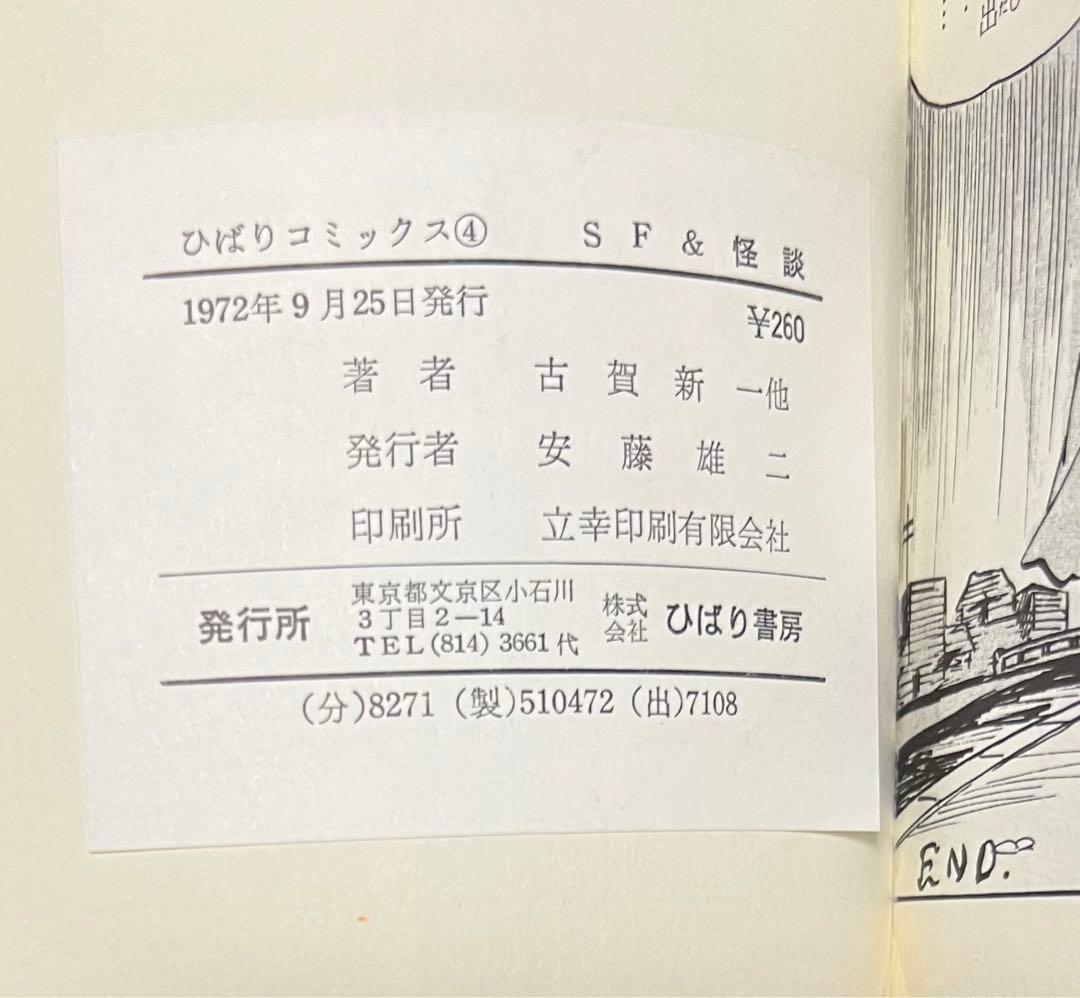 ひばりコミックス④　ＳＦ＆怪談
1972年9月25日発行　¥260
著者　古賀新一他
発行者　安藤雄二
印刷所　立幸印刷有限会社
発行所　東京都文京区小石川
3丁目2―14
TEL(814) 3661代
株式会社　ひばり書房
(分)8271 (製)510472 (出)7108
END.